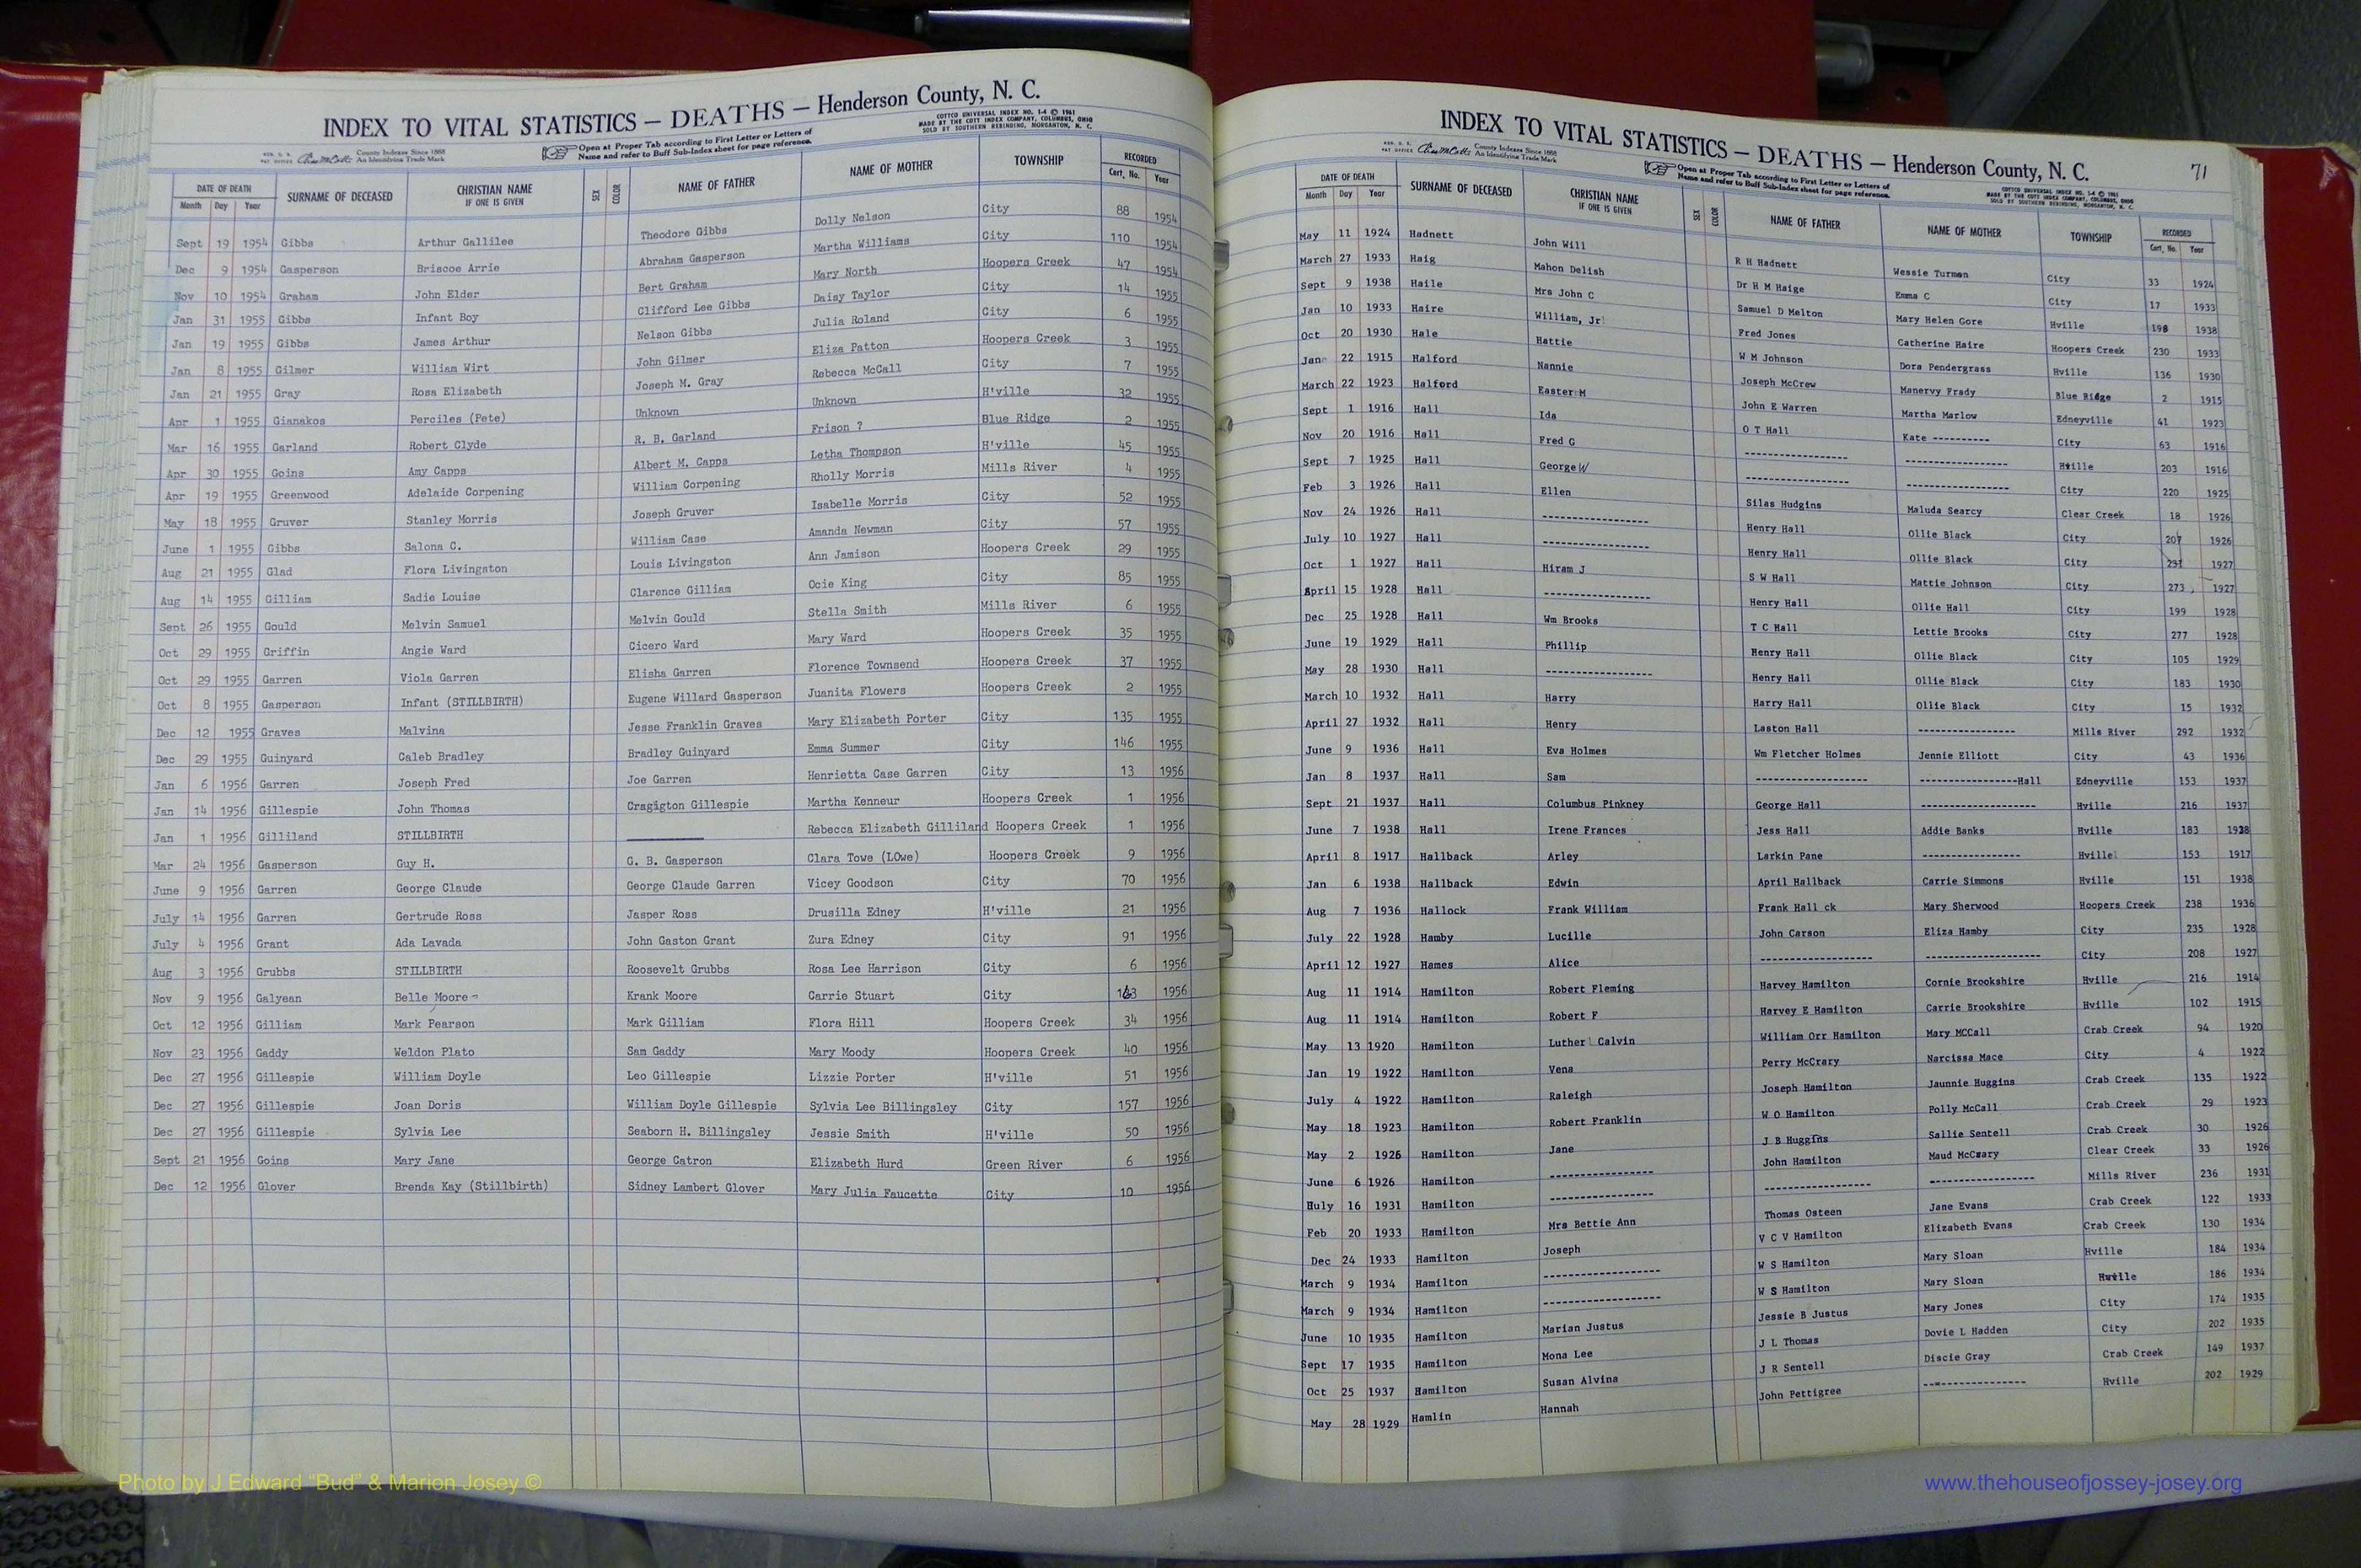 INDEX TO VITAL STATISTICS — DEATHS — Henderson County, N. C.
COTTCO UNIVERSAL INDEX NO. 1-4 © 1961
MADE BY THE COTT INDEX COMPANY, COLUMBUS, OHIO
SOLD BY SOUTHERN REBINDING, MORGANTON, N. C.
County Indexes Since 1888
An Identifying Trade Mark
Open at Proper Tab according to First Letter or Letters of
Name and refer to Buff Sub-Index sheet for page reference.
DATE OF DEATH SURNAME OF DECEASED CHRISTIAN NAME IF ONE IS GIVEN SEX COLOR NAME OF FATHER NAME OF MOTHER TOWNSHIP RECORDED
Month Day Year Cert. No. Year
Sept 19 1954 Gibbs Arthur Gallilee Theodore Gibbs Dolly Nelson City 88 1954
Dec 9 1954 Gasperson Briscoe Arrie Abraham Gasperson Martha Williams City 110 1954
Nov 10 1954 Graham John Elder Bert Graham Mary North Hoopers Creek 47 1954
Jan 31 1955 Gibbs Infant Boy Clifford Lee Gibbs Daisy Taylor City 14 1955
Jan 19 1955 Gibbs James Arthur Nelson Gibbs Julia Roland City 6 1955
Jan 8 1955 Gilmer William Wirt John Gilmer Eliza Patton Hoopers Creek 3 1955
Jan 21 1955 Gray Rosa Elizabeth Joseph M. Gray Rebecca McCall City 7 1955
Apr 1 1955 Gianakos Perciles (Pete) Unknown Unknown H'ville 32 1955
Mar 16 1955 Garland Robert Clyde R. B. Garland Frison ? Blue Ridge 2 1955
Apr 30 1955 Goins Amy Capps Albert M. Capps Letha Thompson H'ville 45 1955
Apr 19 1955 Greenwood Adelaide Corpening William Corpening Rholly Morris Mills River 4 1955
May 18 1955 Gruver Stanley Morris Joseph Gruver Isabelle Morris City 52 1955
June 1 1955 Gibbs Salona C. William Case Amanda Newman City 57 1955
Aug 21 1955 Glad Flora Livingston Louis Livingston Ann Jamison Hoopers Creek 29 1955
Aug 14 1955 Gilliam Sadie Louise Clarence Gilliam Ocie King City 85 1955
Sept 26 1955 Gould Melvin Samuel Melvin Gould Stella Smith Mills River 6 1955
Oct 29 1955 Griffin Angie Ward Cicero Ward Mary Ward Hoopers Creek 35 1955
Oct 29 1955 Garren Viola Garren Elisha Garren Florence Townsend Hoopers Creek 37 1955
Oct 8 1955 Gasperson Infant (STILLBIRTH) Eugene Willard Gasperson Juanita Flowers Hoopers Creek 2 1955
Dec 12 1955 Graves Malvina Jesse Franklin Graves Mary Elizabeth Porter City 135 1955
Dec 29 1955 Guinyard Caleb Bradley Bradley Guinyard Emma Summer City 146 1955
Jan 6 1956 Garren Joseph Fred Joe Garren Henrietta Case Garren City 13 1956
Jan 14 1956 Gillespie John Thomas Gillespie Martha Kenneur Hoopers Creek 1 1956
Jan 1 1956 Gilliland STILLBIRTH Rebecca Elizabeth Gilliland Hoopers Creek 1 1956
Mar 24 1956 Gasperson Guy H. G. B. Gasperson Clara Towe (LOwe) Hoopers Creek 9 1956
June 9 1956 Garren George Claude George Claude Garren Vicey Goodson City 70 1956
July 14 1956 Garren Gertrude Ross Jasper Ross Drusilla Edney H'ville 21 1956
July 4 1956 Grant Ada Lavada John Gaston Grant Zura Edney City 91 1956
Aug 3 1956 Grubbs STILLBIRTH Roosevelt Grubbs Rosa Lee Harrison City 6 1956
Nov 9 1956 Galyean Belle Moore Krank Moore Carrie Stuart City 1956
Oct 12 1956 Gilliam Mark Pearson Mark Gilliam Flora Hill Hoopers Creek 34 1956
Nov 23 1956 Gaddy Weldon Plato Sam Gaddy Mary Moody Hoopers Creek 40 1956
Dec 27 1956 Gillespie William Doyle Leo Gillespie Lizzie Porter H'ville 51 1956
Dec 27 1956 Gillespie Joan Doris William Doyle Gillespie Sylvia Lee Billingsley City 157 1956
Dec 27 1956 Gillespie Sylvia Lee Seaborn H. Billingsley Jessie Smith H'ville 50 1956
Sept 21 1956 Goins Mary Jane George Catron Elizabeth Hurd Green River 6 1956
Dec 12 1956 Glover Brenda Kay (Stillbirth) Sidney Lambert Glover Mary Julia Faucette City 10 1956
Photo by J Edward "Bud" & Marion Josey ©
INDEX TO VITAL STATISTICS — DEATHS — Henderson County, N. C. 71
County Indexes Since 1888
An Identifying Trade Mark
Open at Proper Tab according to First Letter or Letters of
Name and refer to Buff Sub-Index sheet for page reference.
COTTCO UNIVERSAL INDEX NO. 1-4 © 1961
MADE BY THE COTT INDEX COMPANY, COLUMBUS, OHIO
SOLD BY SOUTHERN REBINDING, MORGANTON, N. C.
DATE OF DEATH SURNAME OF DECEASED CHRISTIAN NAME IF ONE IS GIVEN SEX COLOR NAME OF FATHER NAME OF MOTHER TOWNSHIP RECORDED
Month Day Year Cert. No. Year
May 11 1924 Hadnett John Will R H Hadnett Wessie Turmen City 33 1924
March 27 1933 Haig Mahon Delish Dr H M Haige Emma C City 17 1933
Sept 9 1938 Haile Mrs John C Samuel D Melton Mary Helen Gore Hville 198 1938
Jan 10 1933 Haire William, Jr Fred Jones Catherine Haire Hoopers Creek 230 1933
Oct 20 1930 Hale Hattie W M Johnson Dora Pendergrass Hville 136 1930
Jan 22 1915 Halford Nannie Joseph McCrew Manervy Frady Blue Ridge 2 1915
March 22 1923 Halford Easter M John E Warren Martha Marlow Edneyville 41 1923
Sept 1 1916 Hall Ida O T Hall Kate ---------- City 63 1916
Nov 20 1916 Hall Fred G ------------------ ------------------ 203 1916
Sept 7 1925 Hall George W ------------------ ------------------ City 220 1925
Feb 3 1926 Hall Ellen Silas Hudgins Maluda Searcy Clear Creek 18 1926
Nov 24 1926 Hall ------------------ Henry Hall Ollie Black City 207 1926
July 10 1927 Hall ------------------ Henry Hall Ollie Black City 1927
Oct 1 1927 Hall Hiram J S W Hall Mattie Johnson City 273 1927
April 15 1928 Hall ------------------ Henry Hall Ollie Hall City 199 1928
Dec 25 1928 Hall Wm Brooks T C Hall Lettie Brooks City 277 1928
June 19 1929 Hall Phillip Henry Hall Ollie Black City 105 1929
May 28 1930 Hall ------------------ Henry Hall Ollie Black City 183 1930
March 10 1932 Hall Harry Harry Hall Ollie Black City 15 1932
April 27 1932 Hall Henry Laston Hall ---------------- Mills River 292 1932
June 9 1936 Hall Eva Holmes Wm Fletcher Holmes Jennie Elliott City 43 1936
Jan 8 1937 Hall Sam ------------------ ----------------Hall Edneyville 153 1937
Sept 21 1937 Hall Columbus Pinkney George Hall ------------------ Hville 216 1937
June 7 1938 Hall Irene Frances Jess Hall Addie Banks Hville 183 1938
April 8 1917 Hallback Arley Larkin Pane ---------------- Hville 153 1917
Jan 6 1938 Hallback Edwin April Hallback Carrie Simmons Hville 151 1938
Aug 7 1936 Hallock Frank William Frank Hall ck Mary Sherwood Hoopers Creek 238 1936
July 22 1928 Hamby Lucille John Carson Eliza Hamby City 235 1928
April 12 1927 Hames Alice ------------------ ------------------ City 208 1927
Aug 11 1914 Hamilton Robert Fleming Harvey Hamilton Cornie Brookshire Hville 216 1914
Aug 11 1914 Hamilton Robert F Harvey E Hamilton Carrie Brookshire Hville 102 1915
May 13 1920 Hamilton Luther Calvin William Orr Hamilton Mary MCCall Crab Creek 94 1920
Jan 19 1922 Hamilton Vena Perry McCrary Narcissa Mace City 4 1922
July 4 1922 Hamilton Raleigh Joseph Hamilton Jaunnie Huggins Crab Creek 135 1922
May 18 1923 Hamilton Robert Franklin W O Hamilton Polly McCall Crab Creek 29 1923
May 2 1926 Hamilton Jane J B Huggins Sallie Sentell Crab Creek 30 1926
June 6 1926 Hamilton ------------------ John Hamilton Maud McCrary Clear Creek 33 1926
Huly 16 1931 Hamilton ------------------ ------------------ ------------------ Mills River 236 1931
Feb 20 1933 Hamilton Mrs Bettie Ann Thomas Osteen Jane Evans Crab Creek 122 1933
Dec 24 1933 Hamilton Joseph V C V Hamilton Elizabeth Evans Crab Creek 130 1934
March 9 1934 Hamilton ------------------ W S Hamilton Mary Sloan Hville 184 1934
March 9 1934 Hamilton ------------------ W S Hamilton Mary Sloan Hville 186 1934
June 10 1935 Hamilton Marian Justus Jessie B Justus Mary Jones City 174 1935
Sept 17 1935 Hamilton Mona Lee J L Thomas Dovie L Hadden City 202 1935
Oct 25 1937 Hamilton Susan Alvina J R Sentell Discie Gray Crab Creek 149 1937
May 28 1929 Hamlin Hannah John Pettigree ---------------- Hville 202 1929
www.thehouseofjossey-josey.org